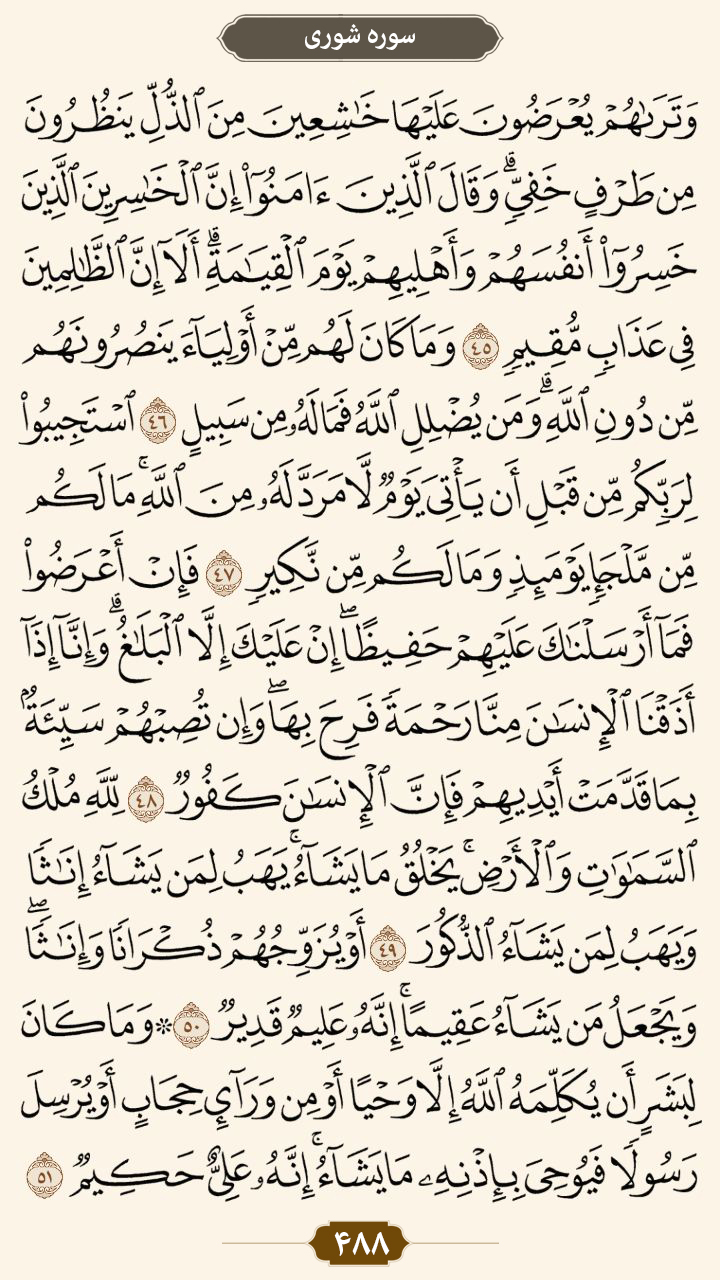 سوره شوری
وَتَرَىٰهُمْ يُعْرَضُونَ عَلَيْهَا خَٰشِعِينَ مِنَ ٱلذُّلِّ يَنظُرُونَ
مِن طَرْفٍ خَفِيٍّۗ وَقَالَ ٱلَّذِينَ ءَامَنُوٓا۟ إِنَّ ٱلْخَٰسِرِينَ ٱلَّذِينَ
خَسِرُوٓا۟ أَنفُسَهُمْ وَأَهْلِيهِمْ يَوْمَ ٱلْقِيَٰمَةِۗ أَلَآ إِنَّ ٱلظَّٰلِمِينَ
فِى عَذَابٍ مُّقِيمٍ ٤٥ وَمَا كَانَ لَهُم مِّنْ أَوْلِيَآءَ يَنصُرُونَهُم
مِّن دُونِ ٱللَّهِۗ وَمَن يُضْلِلِ ٱللَّهُ فَمَا لَهُۥ مِن سَبِيلٍ ٤٦ ٱسْتَجِيبُوا۟
لِرَبِّكُم مِّن قَبْلِ أَن يَأْتِىَ يَوْمٌ لَّا مَرَدَّ لَهُۥ مِنَ ٱللَّهِۚ مَا لَكُم
مِّن مَّلْجَإٍ يَوْمَئِذٍ وَمَا لَكُم مِّن نَّكِيرٍ ٤٧ فَإِنْ أَعْرَضُوا۟
فَمَآ أَرْسَلْنَٰكَ عَلَيْهِمْ حَفِيظًاۖ إِنْ عَلَيْكَ إِلَّا ٱلْبَلَٰغُۗ وَإِنَّآ إِذَآ
أَذَقْنَا ٱلْإِنسَٰنَ مِنَّا رَحْمَةً فَرِحَ بِهَاۖ وَإِن تُصِبْهُمْ سَيِّئَةٌۢ
بِمَا قَدَّمَتْ أَيْدِيهِمْ فَإِنَّ ٱلْإِنسَٰنَ كَفُورٌ ٤٨ لِّلَّهِ مُلْكُ
ٱلسَّمَٰوَٰتِ وَٱلْأَرْضِۚ يَخْلُقُ مَا يَشَآءُۚ يَهَبُ لِمَن يَشَآءُ إِنَٰثًا
وَيَهَبُ لِمَن يَشَآءُ ٱلذُّكُورَ ٤٩ أَوْ يُزَوِّجُهُمْ ذُكْرَانًا وَإِنَٰثًاۖ
وَيَجْعَلُ مَن يَشَآءُ عَقِيمًاۚ إِنَّهُۥ عَلِيمٌ قَدِيرٌ ٥٠ * وَمَا كَانَ
لِبَشَرٍ أَن يُكَلِّمَهُ ٱللَّهُ إِلَّا وَحْيًا أَوْ مِن وَرَآئِ حِجَابٍ أَوْ يُرْسِلَ
رَسُولًا فَيُوحِىَ بِإِذْنِهِۦ مَا يَشَآءُۚ إِنَّهُۥ عَلِىٌّ حَكِيمٌ ٥١
۴۸۸